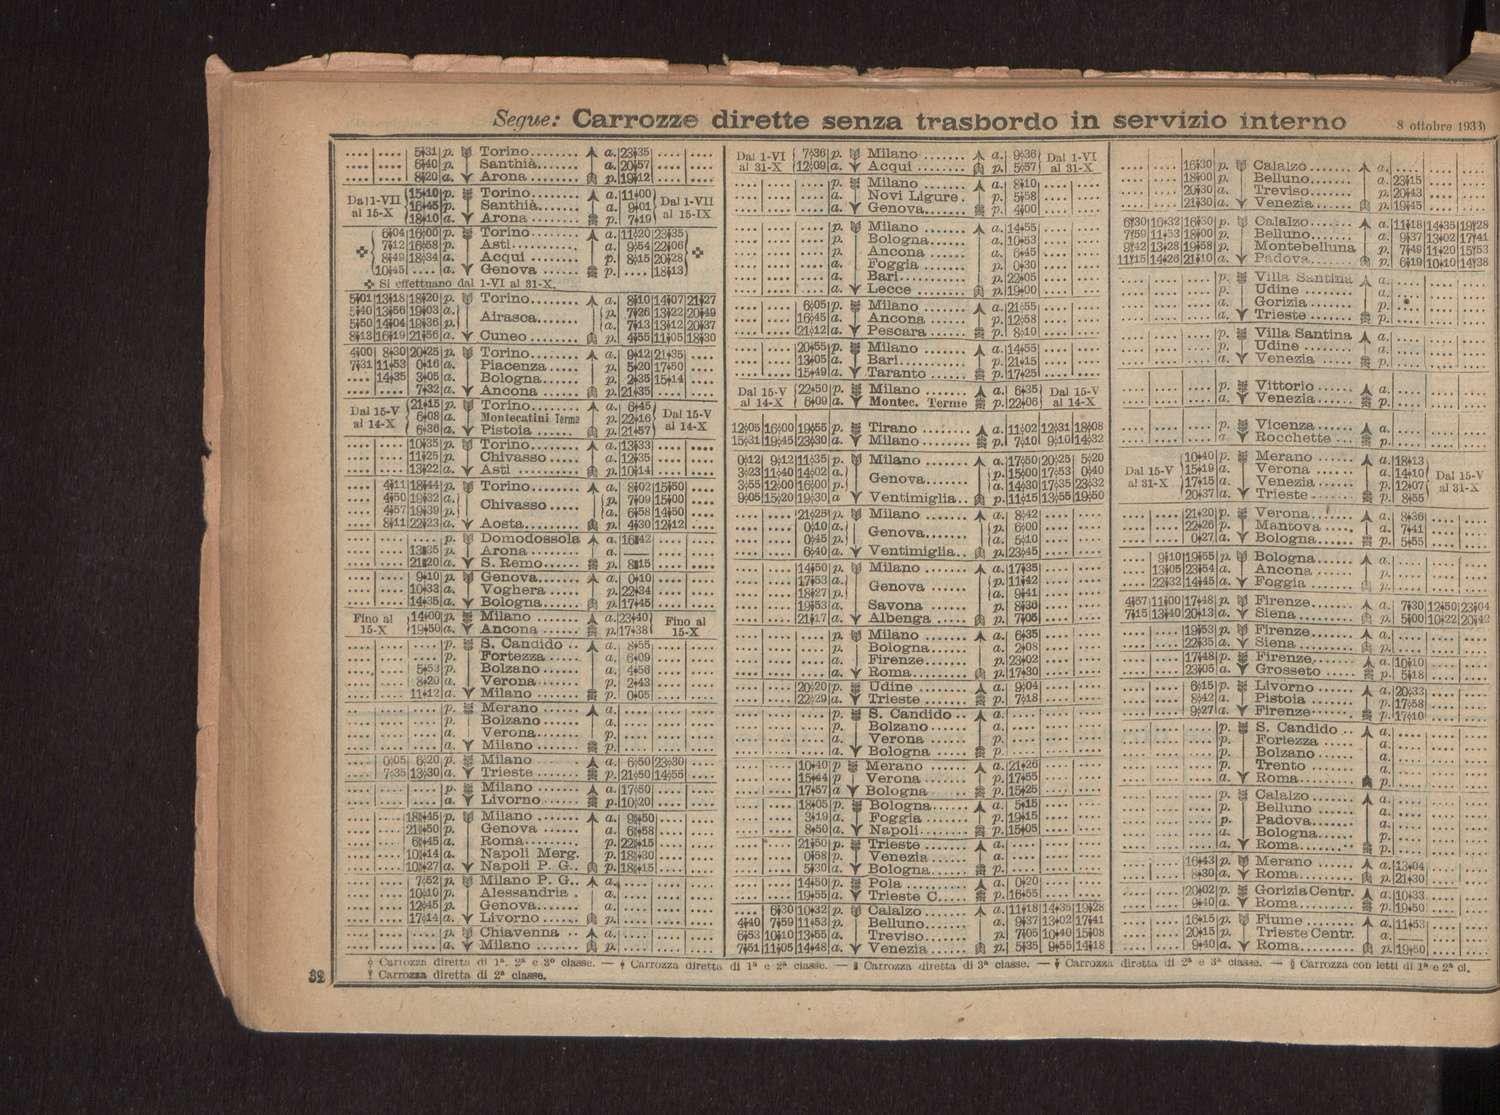 Segue: Carrozze dirette senza trasbordo in servizio interno
8 ottobre 1933
.... .... 5 31 p. Torino........ a. 23 35 .... ....
.... .... 6 40 p. Santhià....... a. 20 57 .... ....
.... .... 8 20 a. Arona ........ p. 19 12 .... ....
Dal 1-VII al 15-X
15 10 p. Torino........ a. 11 00
16 45 p. Santhià....... a. 9 01
18 10 a. Arona ........ p. 7 19
Dal 1-VII al 15-IX
6 04 16 00 p. Torino........ a. 11 20 23 35
7 12 16 58 p. Asti.......... a. 9 54 22 06
8 49 18 34 a. Acqui ........ p. 8 15 20 28
10 45 .... a. Genova ....... p. .... 18 13
Si effettuano dal 1-VI al 31-X.
5 01 13 18 18 20 p. Torino........ a. 8 10 14 07 21 27
5 40 13 56 19 03 a. Airasca....... p. 7 26 13 22 20 49
5 50 14 04 19 36 p. a. 7 13 13 12 20 37
8 13 16 19 21 56 a. Cuneo ........ p. 4 55 11 05 18 30
4 00 8 30 20 25 p. Torino........ a. 9 12 21 35 ....
7 31 11 53 0 16 a. Piacenza ..... p. 5 20 17 50 ....
.... 14 35 3 05 a. Bologna....... p. 2 35 15 14 ....
.... .... 7 32 a. Ancona ....... p. 21 35 .... ....
Dal 15-V al 14-X
21 15 p. Torino........ a. 6 45
6 08 a. Montecatini Terme p. 22 16
6 36 a. Pistoia ...... p. 21 57
Dal 15-V al 14-X
.... .... 10 35 p. Torino........ a. 13 33 .... ....
.... .... 11 25 p. Chivasso ..... a. 12 35 .... ....
.... .... 13 22 a. Asti ......... p. 10 14 .... ....
.... 4 11 18 44 p. Torino........ a. 8 02 15 50 ....
.... 4 50 19 32 a. Chivasso ..... p. 7 09 15 00 ....
.... 4 57 19 39 p. a. 6 58 14 50 ....
.... 8 11 22 23 a. Aosta......... p. 4 30 12 12 ....
.... .... .... p. Domodossola a. 16 42 .... ....
.... .... 13 35 p. Arona ........ a. —— .... ....
.... .... 21 20 a. S. Remo....... p. 8 15 .... ....
.... .... 9 10 p. Genova........ a. 0 10 .... ....
.... .... 10 33 a. Voghera ...... p. 22 34 .... ....
.... .... 14 35 a. Bologna....... p. 17 45 .... ....
Fino al 15-X
14 00 p. Milano ....... a. 23 40
19 50 a. Ancona ....... p. 17 38
Fino al 15-X
.... .... .... p. S. Candido .. a. 8 55 .... ....
.... .... .... p. Fortezza ..... a. 6 09 .... ....
.... .... 5 53 p. Bolzano....... a. 4 56 .... ....
.... .... 8 20 a. Verona ....... p. 2 43 .... ....
.... .... 11 12 a. Milano ....... p. 0 05 .... ....
.... .... .... p. Merano ....... a. .... .... ....
.... .... .... p. Bolzano ...... a. .... .... ....
.... .... .... p. Verona........ a. .... .... ....
.... .... .... a. Milano ....... p. .... .... ....
.... 0 05 6 20 p. Milano ....... a. 6 50 23 30 ....
.... 7 35 13 30 a. Trieste ...... p. 21 50 14 55 ....
.... .... .... p. Milano ....... a. 17 50 .... ....
.... .... .... a. Livorno ...... p. 10 20 .... ....
.... .... 18 45 p. Milano ....... a. 9 50 .... ....
.... .... 21 50 p. Genova ....... a. 6 58 .... ....
.... .... 6 45 a. Roma.......... p. 22 15 .... ....
.... .... 10 14 a. Napoli Merg. p. 18 30 .... ....
.... .... 10 27 a. Napoli P. G.. p. 18 15 .... ....
.... .... 7 52 p. Milano P. G.. a. .... .... ....
.... .... 10 10 p. Alessandria .. a. .... .... ....
.... .... 12 45 p. Genova........ a. .... .... ....
.... .... 17 14 a. Livorno ...... p. .... .... ....
.... .... .... p. Chiavenna .. a. .... .... ....
.... .... .... a. Milano ....... p. .... .... ....
Dal 1-VI al 31-X
7 36 p. Milano ....... a. 9 36
12 09 a. Acqui ........ p. 5 57
Dal 1-VI al 31-X
.... .... .... p. Milano ....... a. 8 10 .... ....
.... .... .... a. Novi Ligure. p. 5 58 .... ....
.... .... .... a. Genova........ p. 4 00 .... ....
.... .... .... p. Milano ....... a. 14 55 .... ....
.... .... .... p. Bologna....... a. 10 53 .... ....
.... .... .... p. Ancona ....... a. 6 45 .... ....
.... .... .... a. Foggia ....... p. 0 30 .... ....
.... .... .... a. Bari.......... p. 22 05 .... ....
.... .... .... a. Lecce ........ p. 19 00 .... ....
.... .... 6 05 p. Milano ....... a. 21 55 .... ....
.... .... 16 45 a. Ancona ....... p. 12 58 .... ....
.... .... 21 12 a. Pescara ...... p. 8 10 .... ....
.... .... 20 55 p. Milano ....... a. 14 55 .... ....
.... .... 13 05 a. Bari.......... p. 21 15 .... ....
.... .... 15 49 a. Taranto ...... p. 17 25 .... ....
Dal 15-V al 14-X
22 50 p. Milano ....... a. 6 35
6 09 a. Montec. Terme p. 22 06
Dal 15-V al 14-X
12 05 16 00 19 55 p. Tirano ....... a. 11 02 12 31 18 08
15 31 19 45 23 30 a. Milano ....... p. 7 10 9 10 14 32
0 12 9 12 11 35 p. Milano ....... a. 17 50 20 25 5 20
3 23 11 40 14 02 a. Genova........ p. 15 00 17 53 0 40
3 55 12 00 16 00 p. a. 14 30 17 35 23 32
9 05 15 20 19 30 a Ventimiglia.. p. 11 15 13 55 19 50
.... .... 21 25 p. Milano ....... a. 8 42 .... ....
.... .... 0 10 a. Genova........ p. 6 00 .... ....
.... .... 0 45 p. a. 5 10 .... ....
.... .... 6 40 a. Ventimiglia.. p. 23 45 .... ....
.... .... 14 50 p. Milano ....... a. 17 35 .... ....
.... .... 17 53 a. Genova ....... p. 11 42 .... ....
.... .... 18 27 p. a. 9 41 .... ....
.... .... 19 53 a. Savona ....... p. 8 30 .... ....
.... .... 21 17 a. Albenga ...... p. 7 05 .... ....
.... .... .... p. Milano ....... a. 6 35 .... ....
.... .... .... p. Bologna....... a. 2 08 .... ....
.... .... .... a. Firenze....... p. 23 02 .... ....
.... .... .... a. Roma.......... p. 17 30 .... ....
.... .... 20 20 p. Udine ........ a. 9 04 .... ....
.... .... 22 29 a. Trieste ...... p. 7 18 .... ....
.... .... .... p. S. Candido .. a. .... .... ....
.... .... .... p. Bolzano....... a. .... .... ....
.... .... .... a. Verona ....... p. .... .... ....
.... .... .... a. Bologna ...... p. .... .... ....
.... .... 10 40 p Merano ....... a. 21 26 .... ....
.... .... 15 44 p Verona ....... a. 17 55 .... ....
.... .... 17 57 a Bologna ...... p. 15 25 .... ....
.... .... 18 05 p. Bologna....... a. 5 15 .... ....
.... .... 3 19 a. Foggia ....... p. 19 15 .... ....
.... .... 8 50 a. Napoli........ p. 15 05 .... ....
.... .... 21 50 p. Trieste ...... a. .... .... ....
.... .... 0 58 p. Venezia ...... a. .... .... ....
.... .... 5 30 a. Bologna ...... p. .... .... ....
.... .... 14 50 p. Pola ......... a. 0 20 .... ....
.... .... 19 55 a. Trieste C..... p. 16 55 .... ....
.... 6 30 10 32 p. Calalzo....... a. 11 18 14 35 19 28
4 40 7 59 11 53 p. Belluno....... a. 9 37 13 02 17 41
6 53 10 10 13 55 a. Treviso....... p. 7 05 10 40 15 08
7 51 11 05 14 48 a. Venezia ...... p. 5 35 9 55 14 18
.... .... 16 30 p. Calalzo ...... a. .... .... ....
.... .... 18 00 p. Belluno....... a. 23 15 .... ....
.... .... 20 30 a. Treviso ...... p. 20 43 .... ....
.... .... 21 30 a. Venezia ...... p. 19 45 .... ....
6 30 10 32 16 30 p. Calalzo ...... a. 11 18 14 35 19 28
7 59 11 53 18 00 p. Belluno....... a. 9 37 13 02 17 41
9 42 13 28 19 58 a. Montebelluna p. 7 49 11 20 15 53
11 15 14 26 21 10 a. Padova........ p. 6 19 10 10 14 38
.... .... .... p. Villa Santina a. .... .... ....
.... .... .... p. Udine ........ a. .... .... ....
.... .... .... a. Gorizia ...... p. .... .... ....
.... .... .... a. Trieste ...... p. .... .... ....
.... .... .... p. Villa Santina a. .... .... ....
.... .... .... p. Udine ........ a. .... .... ....
.... .... .... a. Venezia ...... p. .... .... ....
.... .... .... p. Vittorio ..... a. .... .... ....
.... .... .... a. Venezia....... p. .... .... ....
.... .... .... p. Vicenza ...... a. .... .... ....
.... .... .... a. Rocchette .... p. .... .... ....
Dal 15-V al 31-X
10 40 p. Merano ....... a. 18 13
15 19 a. Verona ....... p. 14 10
17 15 a. Venezia ...... p. 12 07
20 37 a. Trieste ...... p. 8 55
Dal 15-V al 31-X
.... .... 21 20 p. Verona........ a. 8 36 .... ....
.... .... 22 26 p. Mantova ...... a. 7 41 .... ....
.... .... 0 27 a. Bologna....... p. 5 55 .... ....
.... 9 10 19 55 p. Bologna....... a. .... .... ....
.... 13 05 23 54 a. Ancona ....... p. .... .... ....
.... 22 32 14 45 a. Foggia ....... p. .... .... ....
4 57 11 00 17 48 p. Firenze ...... a. 7 30 12 50 23 04
7 15 13 40 20 13 a. Siena ........ p. 5 00 10 22 20 42
.... .... 19 53 p. Firenze....... a. .... .... ....
.... .... 22 35 a. Siena ........ p. .... .... ....
.... .... 17 48 p. Firenze....... a. 10 10 .... ....
.... .... 23 05 a. Grosseto ..... p. 5 18 .... ....
.... .... 6 15 p. Livorno ...... a. 20 33 .... ....
.... .... 8 42 a. Pistoia ...... p. 17 58 .... ....
.... .... 9 27 a. Firenze....... p. 17 10 .... ....
.... .... .... p. S. Candido .. a. .... .... ....
.... .... .... p. Fortezza ..... a. .... .... ....
.... .... .... p. Bolzano ...... a. .... .... ....
.... .... .... p. Trento ....... a. .... .... ....
.... .... .... a. Roma.......... p. .... .... ....
.... .... .... p. Calalzo ...... a. .... .... ....
.... .... .... p. Belluno ...... a. .... .... ....
.... .... .... p. Padova........ a. .... .... ....
.... .... .... a. Bologna....... p. .... .... ....
.... .... .... a. Roma.......... p. .... .... ....
.... .... 16 43 p. Merano ....... a. 13 04 .... ....
.... .... 8 30 a. Roma.......... p. 21 30 .... ....
.... .... 20 02 p. Gorizia Centr. a. 10 33 .... ....
.... .... 9 40 a. Roma.......... p. 10 50 .... ....
.... .... 16 15 p. Fiume ........ a. 11 53 .... ....
.... .... 20 15 p. Trieste Centr. a. .... .... ....
.... .... 9 40 a. Roma.......... p. 19 50 .... ....
Carrozza diretta di 1ª, 2ª e 3ª classe. — Carrozza diretta di 1ª e 2ª classe. — Carrozza diretta di 3ª classe. — Carrozza diretta di 2ª e 3ª classe. — Carrozza con letti di 1ª e 2ª cl.
Carrozza diretta di 2ª classe.
32